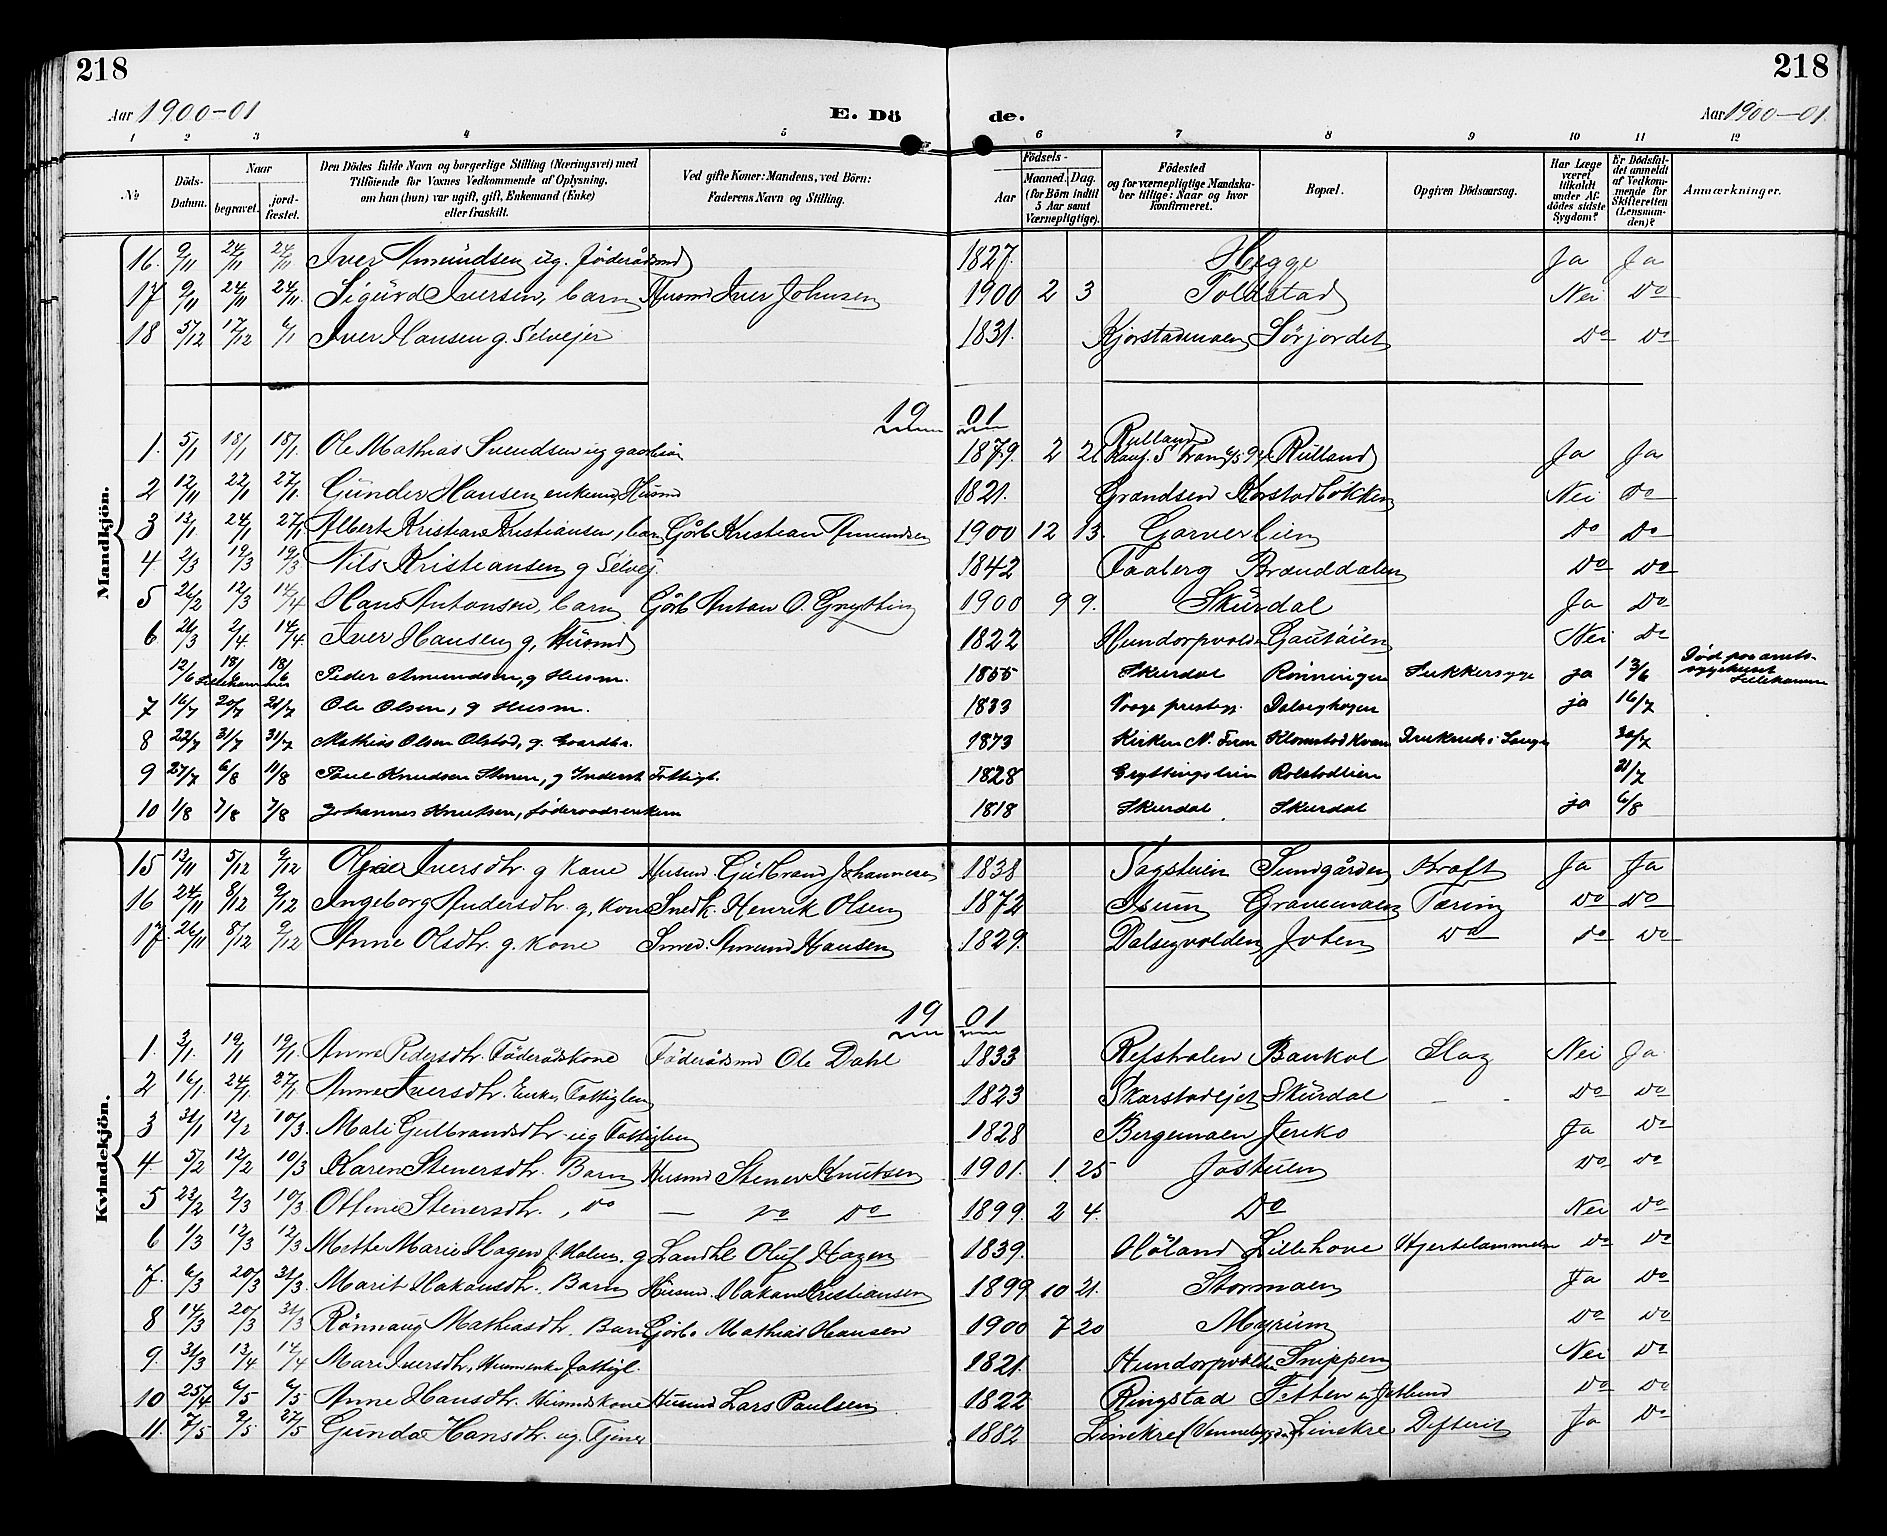 218
218
Aar 1900-01
E. Dö
de.
Aar 1900-01.
1 2 3 4 5 6 7 8 9 10 11 12
No
Döds-Datum.
Naar
begravet.
jord-fæstet.
Den Dödes fulde Navn og borgerlige Stilling (Næringsvei) med
Tilföiende for Voxnes Vedkommende af Oplysning,
om han (hun) var ugift, gift, Enkemand (Enke)
eller fraskilt.
Ved gifte Koner: Mandens, ved Börn:
Faderens Navn og Stilling.
Födsels-
Aar
Maaned. Dag.
(for Börn indtil
5 Aar samt
Værnepligtige).
Födested
og for værnepligtige Mandska-
ber tillige: Naar og hvor
konfirmeret.
Bopæl.
Opgiven Dödsaarsag.
Har Læge
været
tilkaldt
under Af-
dödes sidste
Sygdom?
Er Dödsfal-
det anmeldt
af Vedkom-
mende for
Skifteretten
(Lensman-
den)?
Anmærkninger.
Mandkjön.
16. 9/11 24/11 24/11 Iver Amundsen ug. föderådsmd 1827. Hegge Ja Ja
17 9/11 24/11 24/11 Sigurd Iversen, barn Husmd Iver Johnsen 1900 2 3 Toldstad Nei Do
18 5/12 17/12 6/1 Iver Hansen g. Selvejer 1831. Kjorstadmoen Sørjordet Do Do
19 01
1. 5/1 18/1 18/1 Ole Mathias Svendsen ug 1879. 2 21 Rulland Rulland Ja Ja
2 12/11 22/1 27/1 Gunder Hansen enkemd, Husmd 1821. Grandsen Korstadbökken Nei Do
3 13/1 24/1 27/1 Albert Kristian Kristiansen, barn Gårb. Kristian Amundsen 1900 12 13. Garverlien Do Do
4 2/3 19/3 19/3 Nils Kristiansen g Selvej. 1842 Faaberg Brænddalen Do Do
5 26/2 12/3 14/4 Hans Antonsen, barn Gårb Anton O. Gryttin 1900 9 9. Skurdal Ja Do
6 26/3 2/4. 14/4. Iver Hansen g, Husmd 1822 Hundorpvolden Gautåien Nei Do
12/6 18/6 18/6 Peder Amundsen, g Husm. 1855 Skurdal Rönningen Sukkersyge ja 13/6 Död paa amts-
Lillehammer sygehuset Lillehammer
7 16/7 20/7 21/7 Ole Olsen, g Husm. 1833 Vaage prestegj. Dalseghagen ja 16/7
8 22/7 31/7 31/7 Mathias Olsen Olstad, g. Gaardbr. 1873 Kirken N. Fron Klomstad Kvam 30/7
9 27/7 6/8 11/8 Paul Knudsen g Inderst Fattigl. 1828 Gryttingslien Rolstadlien 31/7
10 1/8 7/8 7/8 Johannes Knutsen, föderaadsenkem 1818 Skurdal Skurdal ja 6/8
Kvindekjön.
15 13/11 5/12 9/12 Iversdtr. g Kone Husmd. Gulbrand Johannesen 1838 Sagsteien Sundgården Kræft Ja Ja
16 24/11 8/12 9/12 Ingeborg Andersdtr. g, Kone Snedk. Henrik Olsen 1872 Isum Gravemoen Tæring Do Do
17. 26/11 8/12 9/12 Anne Olsdtr. g. Kone Smed. Amund Hansen 1829. Dalsegvolden Joten Do Do Do
19 01
1. 3/1. 19/1 19/1. Anne Pedersdtr. Föderådskone Föderådsmd Ole Dahl 1833 Refshalen Baukol Slag Nei Ja.
2 16/1. 24/1. 27/1 Anne Iversdtr. Enke, Fattiglem 1823 Skarstadejet Skurdal - - Do Do
3 31/1 12/2 10/3. Mali Gulbrandsdtr ug Fattiglem 1828 Bergemoen Jeriko Ja Do
4 5/2 12/2 10/3 Karen Stenersdtr. Barn Husmd Stener Knutsen 1901. 1. 25 Jostuen Do Do
5 23/2 2/3 10/3 Othine Stenersdtr., Do — Do Do 1899. 2 4. Do Nei Do
6 1/3 12/3 12/3 Mette Marie Hagen f. Holm. g Landhl Oluf Hagen 1839. Höland Lillehove Hjertelammelse Do Do
7. 6/3 20/3 31/3 Marit Hakansdtr. Barn Husmd. Hakan Kristiansen 1899 10 21. Stormoen Ja Do
8 14/3 20/3 31/3 Rönnaug Mathiasdtr. Barn Gårb. Mathias Hansen 1900 7 20 Myrum Do Do
9. 31/3 13/4 14/4 Mari Iversdtr, Husmenke fattigl. 1821. Hundorpvolden Snippen Nei Do
10 25/4 6/5 6/5 Anne Hansdtr. Husmdskone Husmd Lars Paulsen 1822 Ringstad Fetten Do Do
11. 7/5 9/5 27/5 Gunda Hansdtr. ug. Tjener 1882 Linekre Linekre Difterit Ja Do